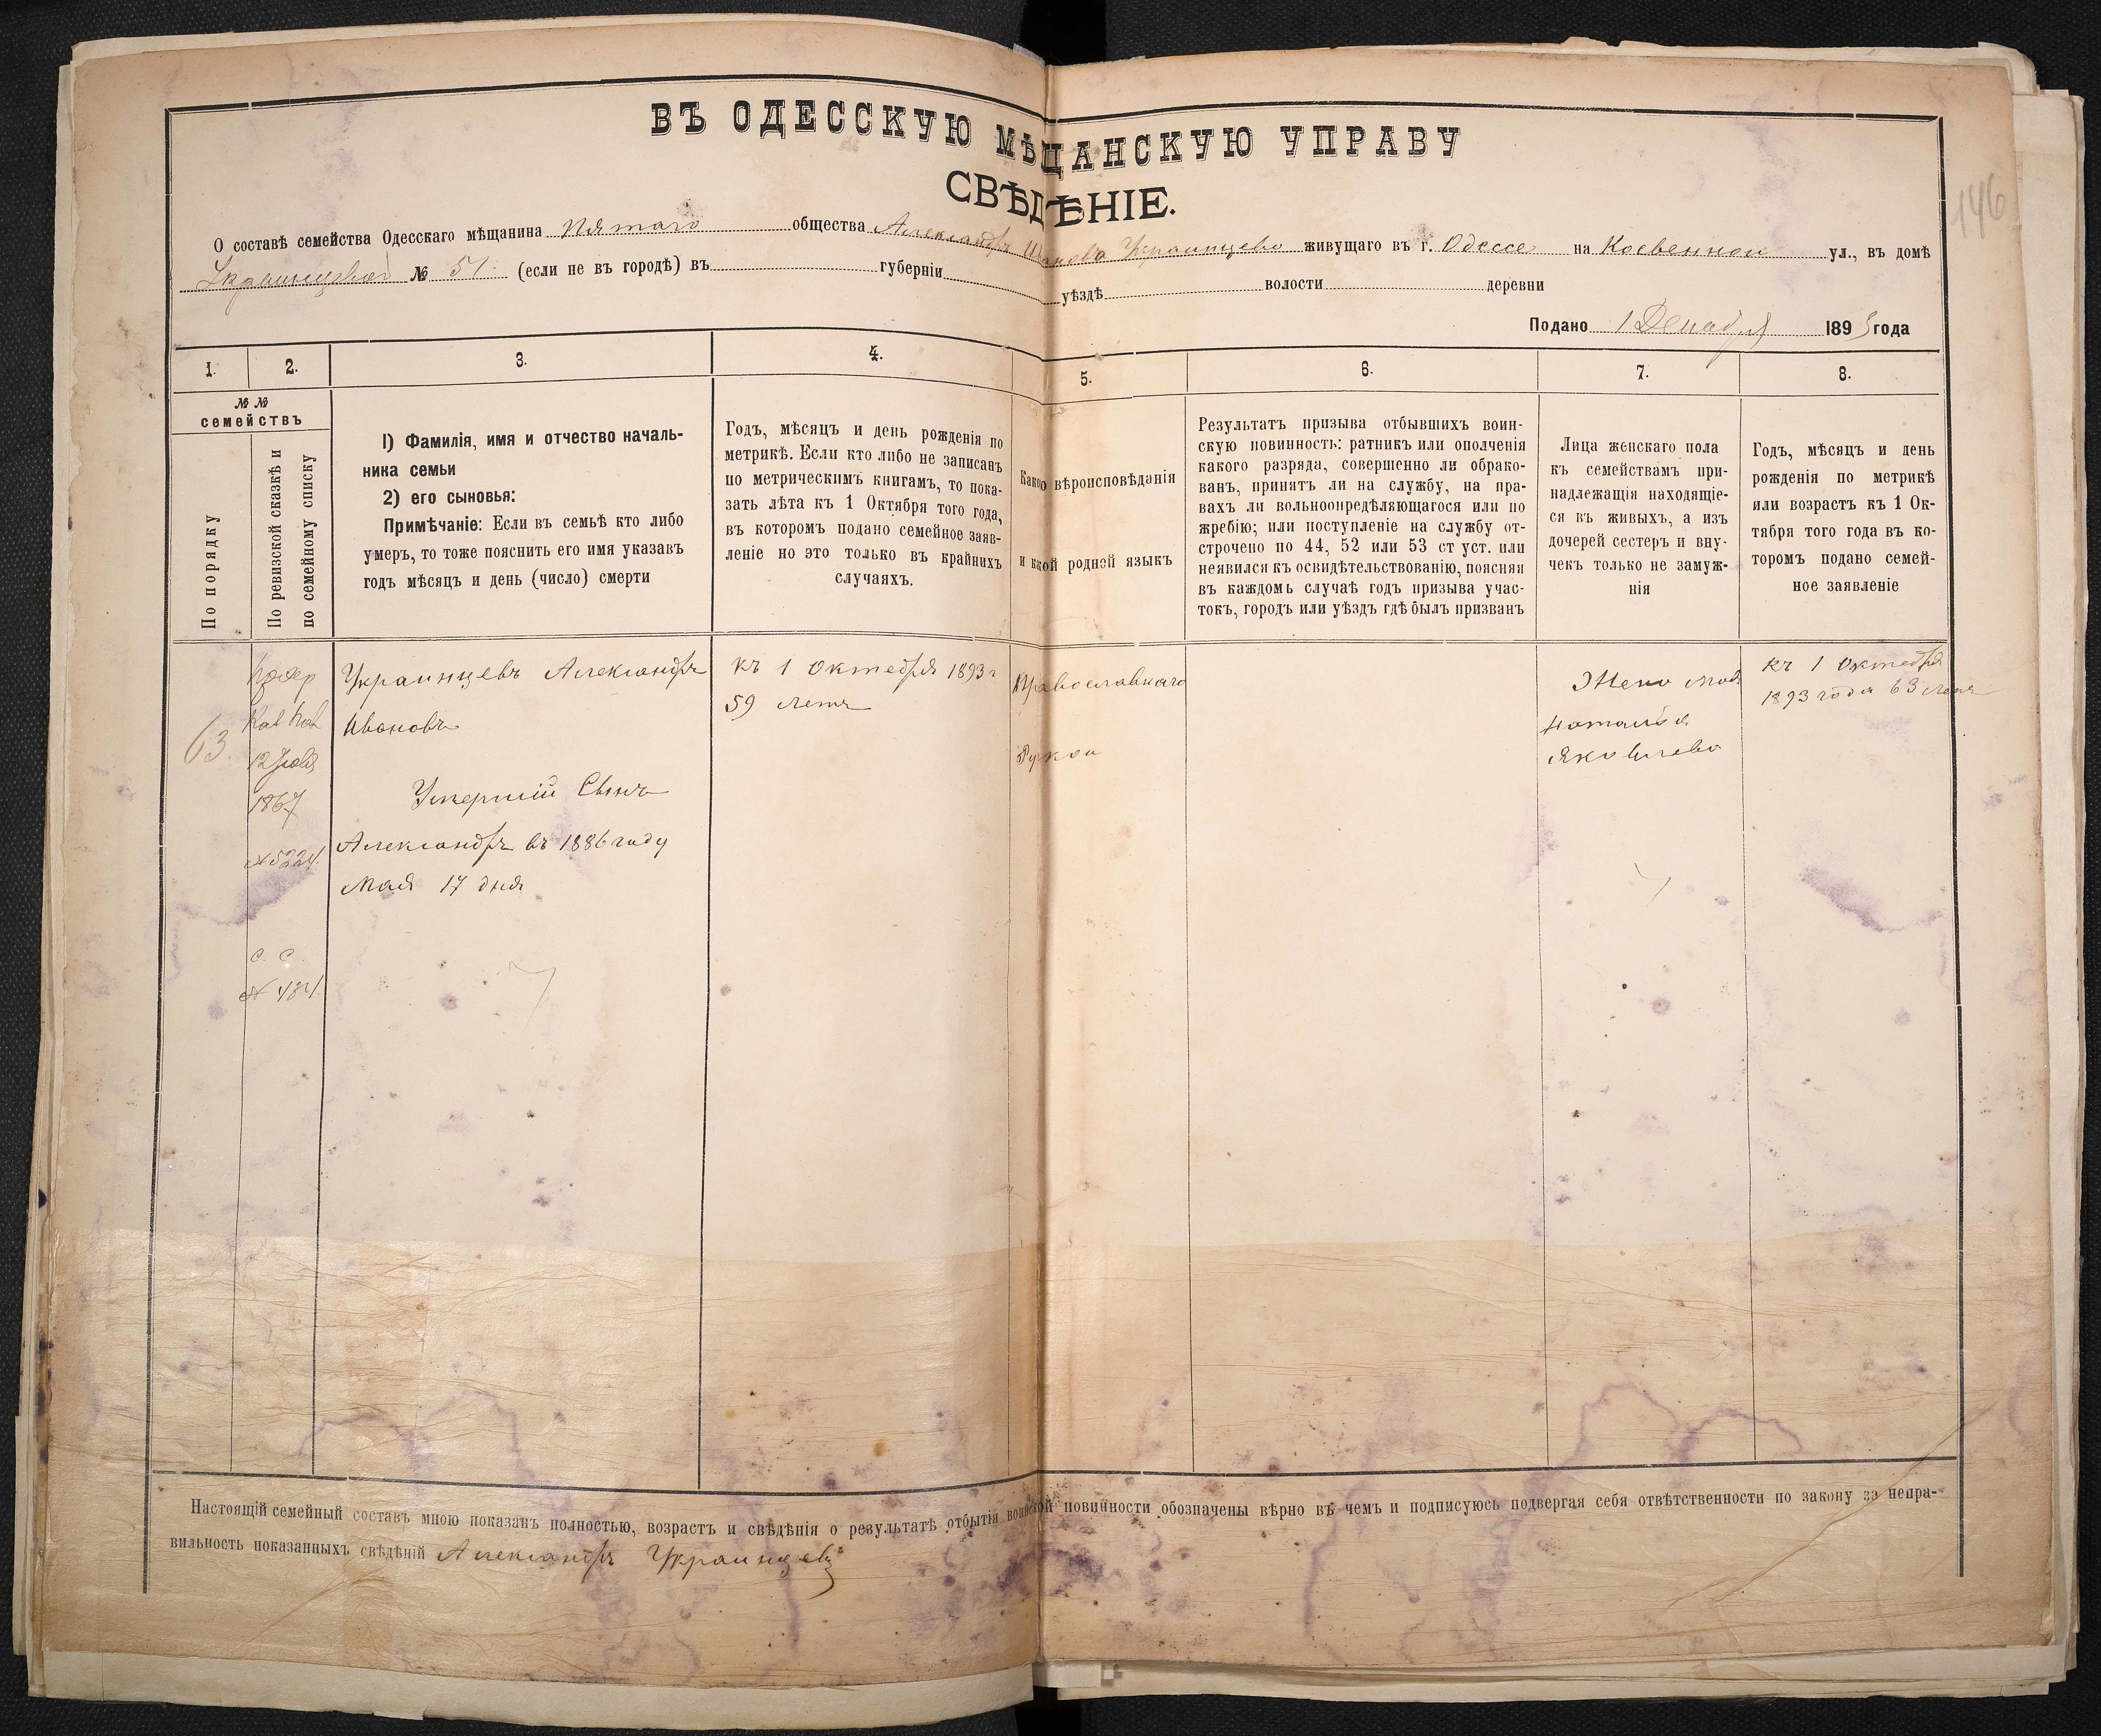 ВЪ ОДЕССКУЮ МѢЩАНСКУЮ УПРАВУ
СВѢДѢНІЕ.
146
О составѣ семейства Одесскаго мѣщанина Пятаго общества Александръ Иванова Украинцева живущаго въ г. Одессе на Косвенной ул., въ домѣ
Украинцевой № 51 (если не въ городѣ) въ губерніи уѣздѣ волости деревни
Подано 1 Декабря 1893 года
1.
2.
3.
4.
5.
6.
7.
8.
№ №
семействъ
По порядку
По ревизской сказкѣ и
по семейному списку
1) Фамилія, имя и отчество началь-
ника семьи
2) его сыновья:
Примѣчаніе: Если въ семьѣ кто либо
умеръ, то тоже пояснить его имя указавъ
годъ мѣсяцъ и день (число) смерти
Годъ, мѣсяцъ и день рожденія по
метрикѣ. Если кто либо не записанъ
по метрическимъ книгамъ, то пока-
зать лѣта къ 1 Октября того года,
въ которомъ подано семейное заяв-
леніе но это только въ крайнихъ
случаяхъ.
Какого вѣроисповѣданія
и какой родной языкъ
Результатъ призыва отбывшихъ воин-
скую повинность: ратникъ или ополченія
какого разряда, совершенно ли обрако-
ванъ, принятъ ли на службу, на пра-
вахъ ли вольноопредѣляющагося или по
жребію; или поступленіе на службу от-
строчено по 44, 52 или 53 ст уст. или
неявился къ освидѣтельствованію, поясняя
въ каждомъ случаѣ годъ призыва учас-
токъ, городъ или уѣздъ гдѣ былъ призванъ
Лица женскаго пола
къ семействамъ при-
надлежащія находящіе-
ся въ живыхъ, а изъ
дочерей сестеръ и вну-
чекъ только не замуж-
нія
Годъ, мѣсяцъ и день
рожденія по метрикѣ
или возрастъ къ 1 Ок-
тября того года въ ко-
торомъ подано семей-
ное заявленіе
63.
1867
№ 5224.
С. С.
Украинцевъ Александръ
Ивановъ
Умершій Сынъ
Александръ въ 1886 году
Мая 17 дня
къ 1 Октебря 1893 г
59 летъ
Православнаго
Жена моя
Наталья
Яковлева
къ 1 Октебря
1893 года 63 летъ
Настоящій семейный составъ мною показанъ полностью, возрастъ и свѣдѣнія о результатѣ отбытія воинской повинности обозначены вѣрно въ чемъ и подписуюсь подвергая себя отвѣтственности по закону за непра-
вильность показанныхъ свѣдѣній Александръ Украинцевъ